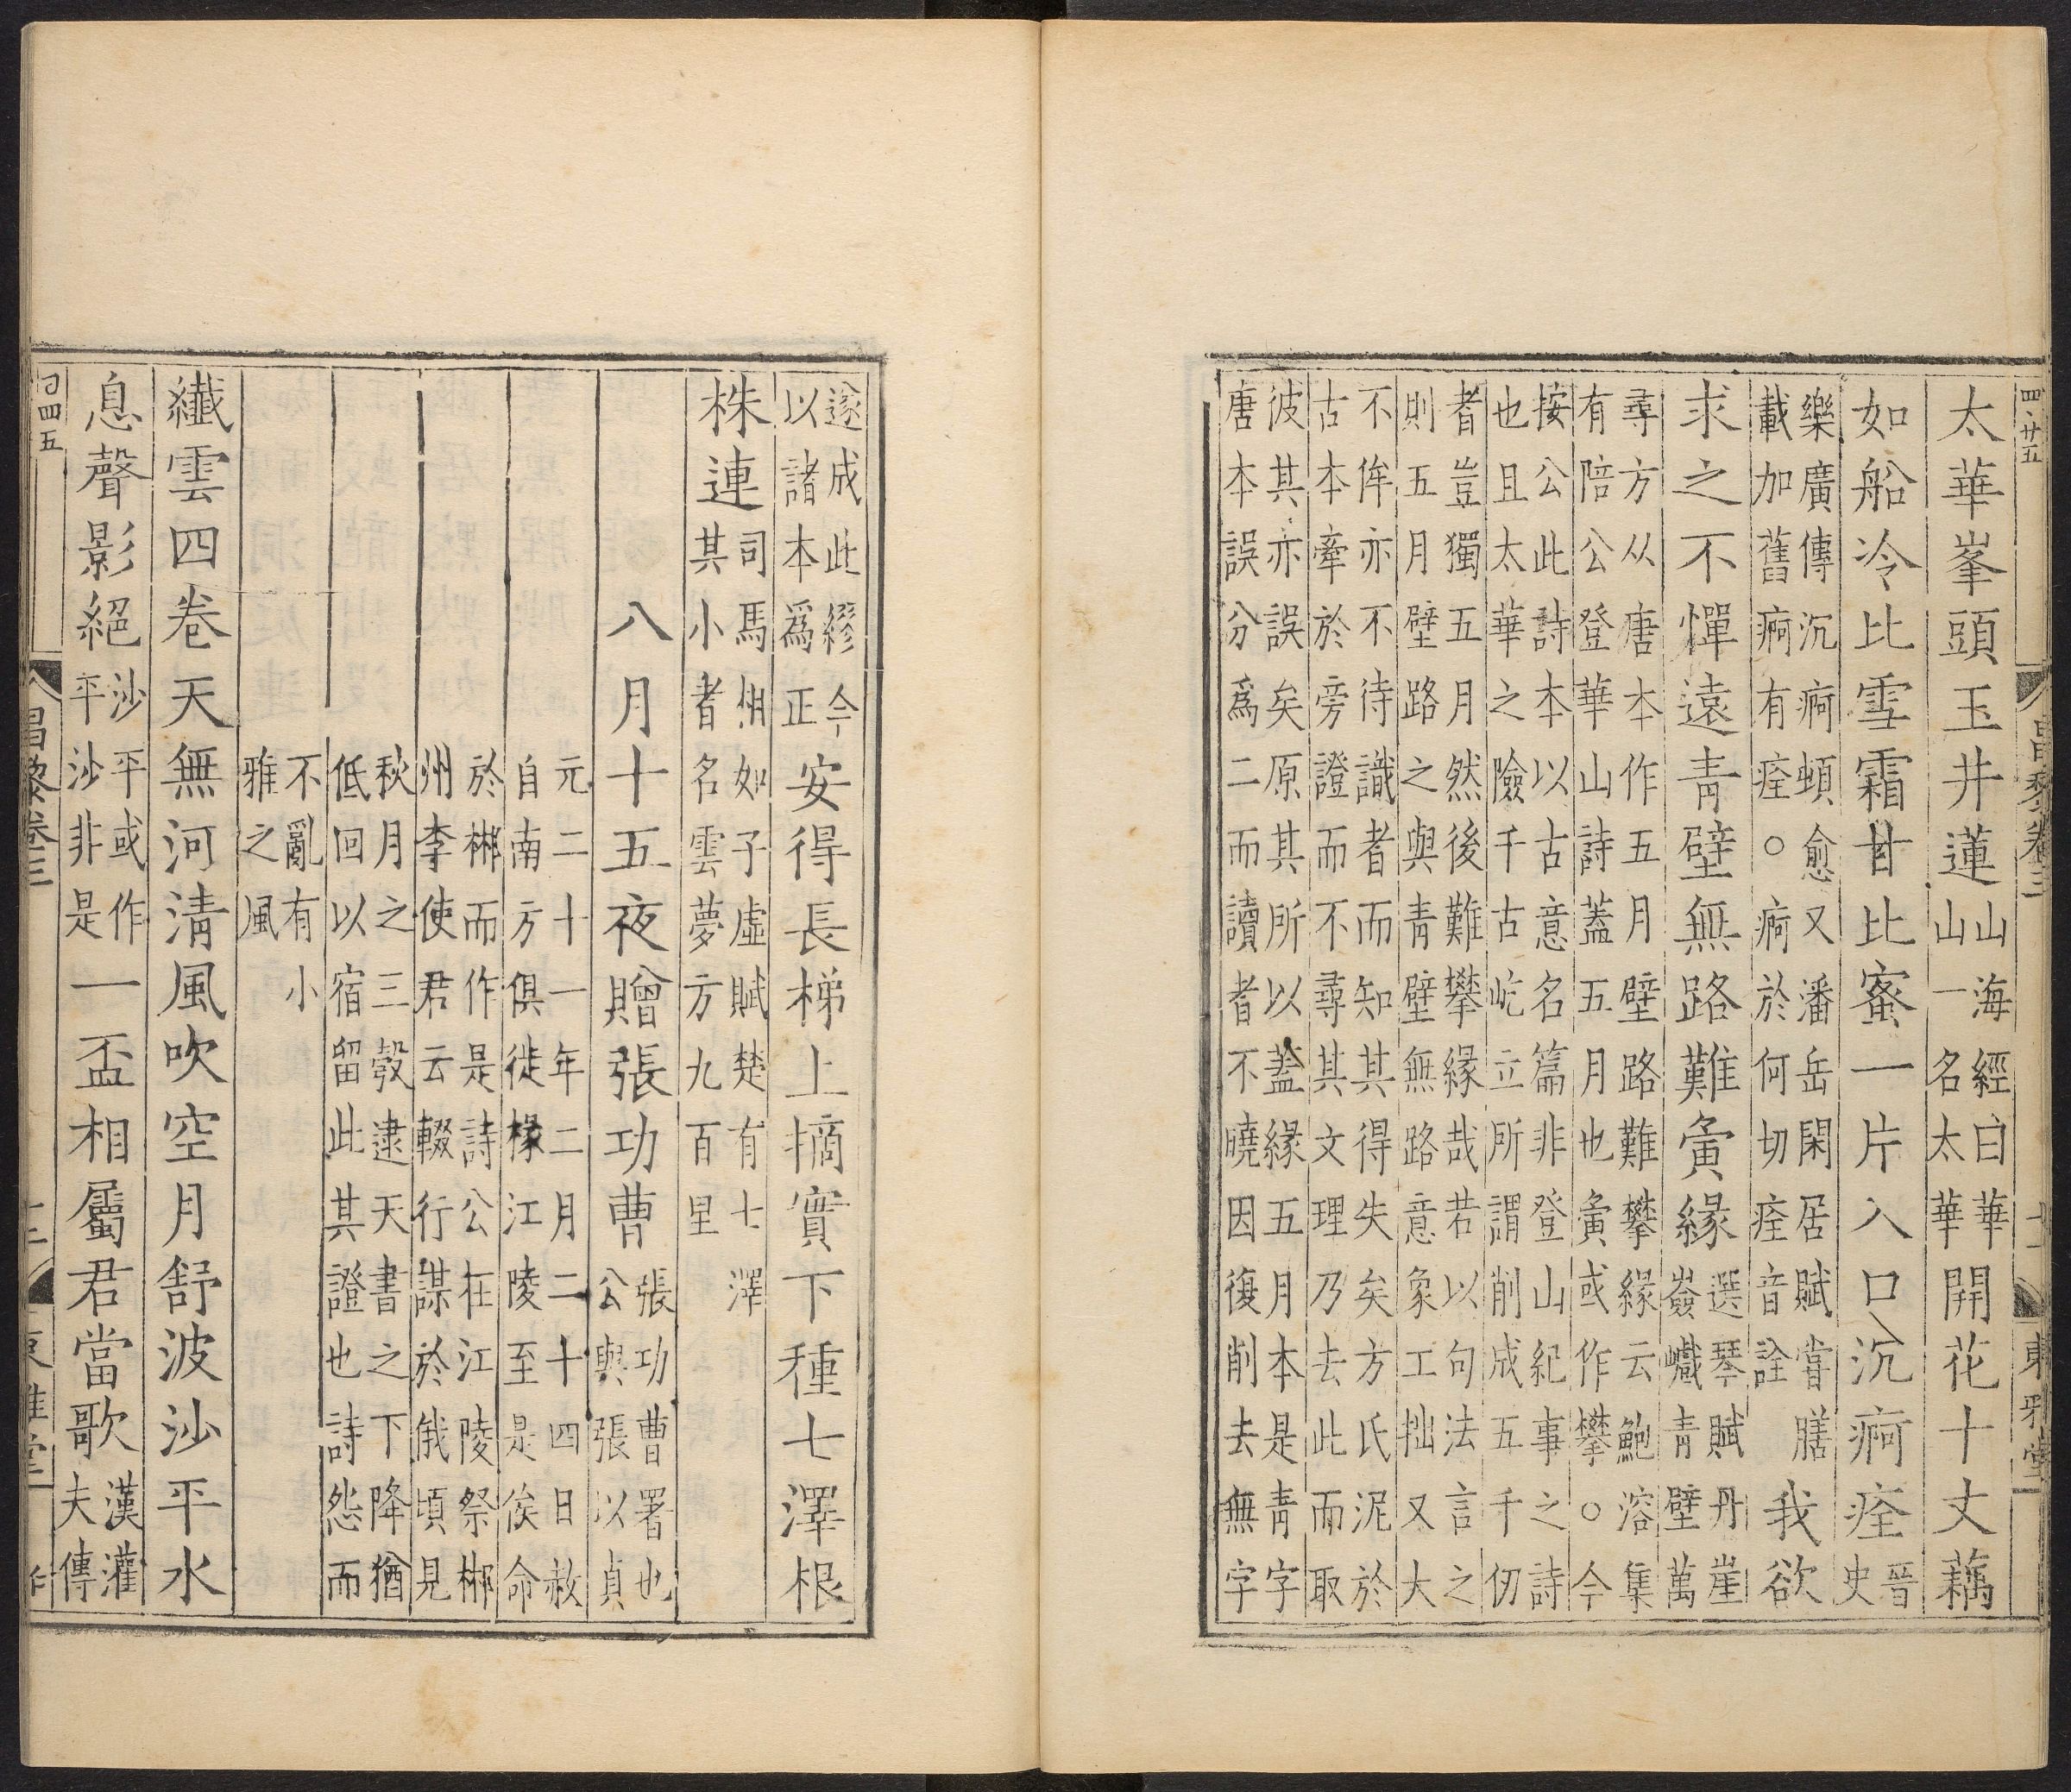 四廿五 昌黎卷三 十一 東雅堂
太華峯頭玉井蓮山海經曰華山一名太華開花十丈藕
如船冷比雪霜甘比蜜一片入口沉痾痊晉史
樂廣傳沉痾頓愈又潘岳閑居賦嘗膳載加舊痾有痊○痾於何切痊音詮我欲
求之不憚遠青壁無路難夤緣選琴賦丹崖嶮巇青壁萬
尋方从唐本作五月壁路難攀緣云鮑溶集有陪公登華山詩蓋五月也夤或作攀○今
按公此詩本以古意名篇非登山紀事之詩也且太華之險千古屹立所謂削成五千仞
者豈獨五月然後難攀緣哉若以句法言之則五月壁路之與青壁無路意象工拙又大
不侔亦不待識者而知其得失矣方氏泥於古本牽於旁證而不尋其文理乃去此而取
彼其亦誤矣原其所以蓋緣五月本是青字唐本誤分爲二而讀者不曉因復削去無字
遂成此繆今以諸本爲正安得長梯上摘實下種七澤根
株連司馬相如子虛賦楚有七澤其小者名雲夢方九百里
八月十五夜贈張功曹張功曹署也公與張以貞
元二十一年二月二十四日赦自南方俱徙掾江陵至是俟命
於郴而作是詩公在江陵祭郴州李使君云輟行謀於俄頃見
秋月之三彀逮天書之下降猶低回以宿留此其證也詩怨而
不亂有小雅之風
纖雲四卷天無河清風吹空月舒波沙平水
息聲影絕沙平或作平沙非是一盃相屬君當歌漢灌夫傳
四五 昌黎卷三 十二 東雅堂